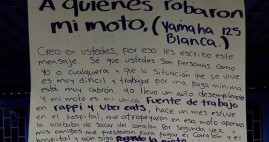 A quienes robaron
mi moto. (Yamaha 125
Blanca.)
Creo en ustedes, por eso les escribo este
mensaje. Se que ustedes son personas como
yo o cualquiera y que la situación que se vive
es muy difícil y trabajar por una paga mínima
está muy cabrón. Yo llevo un año desempleado
y mi moto es mi única Fuente de trabajo
en rappi y uber eats. hace un mes estuve
en el hospital, me atropellaron en esa moto apenas
la acababa de sacar del corralón por segunda vez
mis amigos me prestaron para pagar el corralón y el
hospital y aún sigo